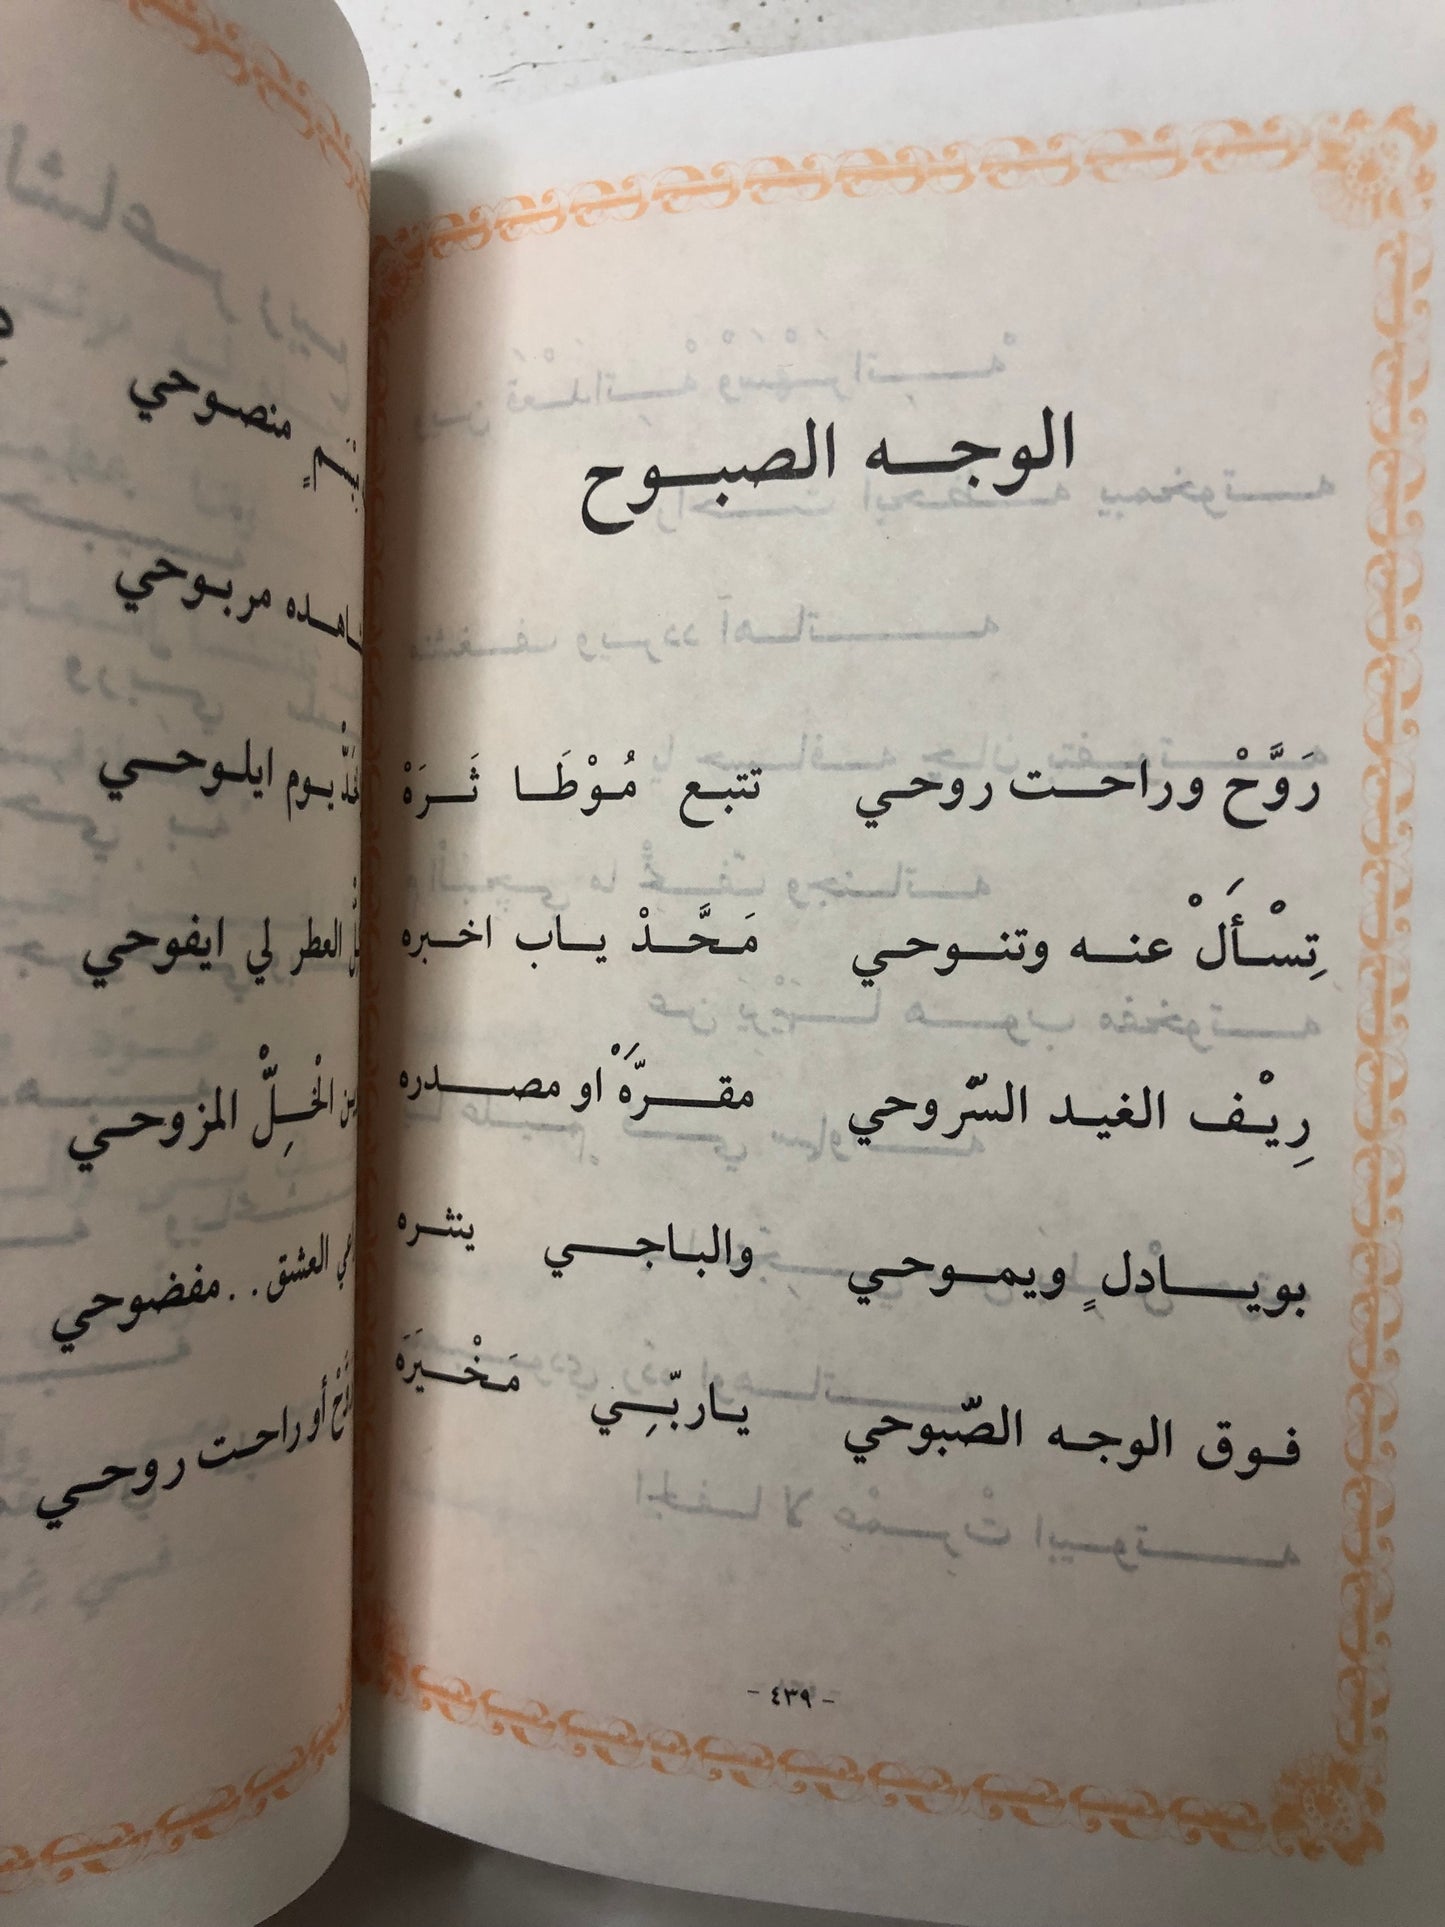 الوجه الصبوح
رَوَّحْ وراحت روحي تتبع مُوْطَا ثَرَهْ
تِسْأَلْ عنه وتنوحي مَحَّدْ ياب اخبره
رِيْف الغيد السّروحي مقرّهْ او مصدره
بويادلٍ ويموحي والباجي ينثره
فوق الوجه الصّبوحي ياربِّي مَخْيَرَه
- ٤٣٩ -
منصوحي
مربوحي
بوم ايلوحي
العطر لي ايفوحي
الْخِلّ المزوحي
العشق.. مفضوحي
أو راحت روحي